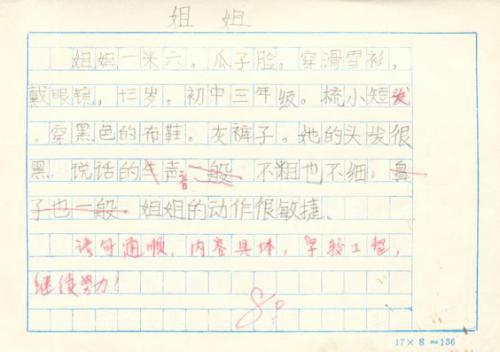 姐姐
姐姐一米六。瓜子脸。穿滑雪衫。
戴眼镜,十三岁。初中三年级。梳小短发
。穿黑色的布鞋。灰裤子。她的头发很
黑。说话的声音一般 不粗也不细。鼻
子也一般。姐姐的动作很敏捷。
语句通顺,内容具体,字较工整,
继续努力!
80
17×8=136